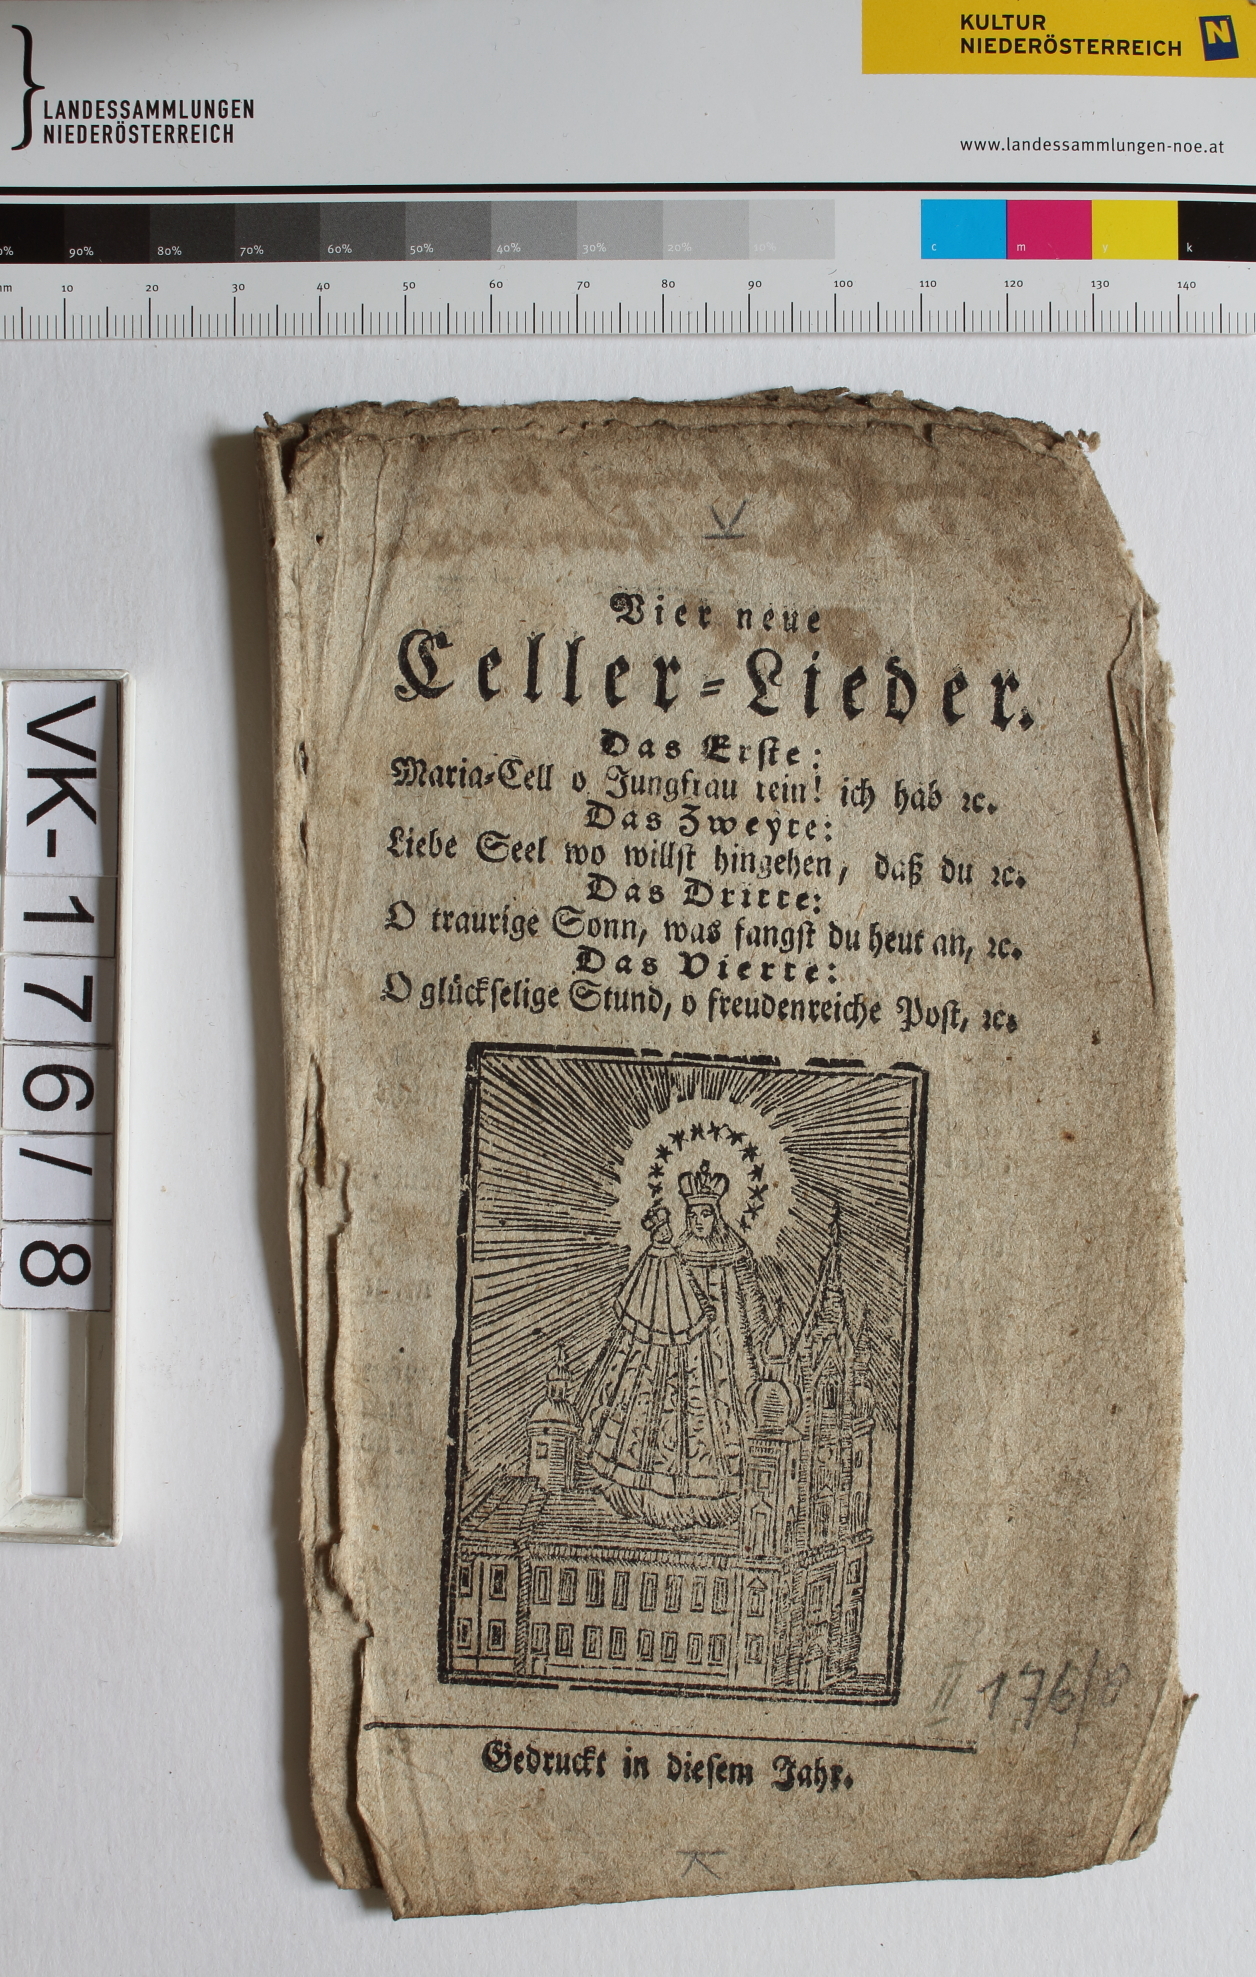 KULTUR
NIEDERÖSTERREICH
N
LANDESSAMMLUNGEN
NIEDERÖSTERREICH
www.landessammlungen-noe.at
0% 90% 80% 70% 60% 50% 40% 30% 20% 10% c m y k
mm 10 20 30 40 50 60 70 80 90 100 110 120 130 140
Vier neue
Celler-Lieder.
Das Erste:
Maria-Cell o Jungfrau rein! ich hab ꝛc.
Das Zweyte:
Liebe Seel wo willst hingehen, daß du ꝛc.
Das Dritte:
O traurige Sonn, was fangst du heut an, ꝛc.
Das Vierte:
O glückselige Stund, o freudenreiche Post, ꝛc.
II 176/8
Gedruckt in diesem Jahr.
K
VK-1776/8